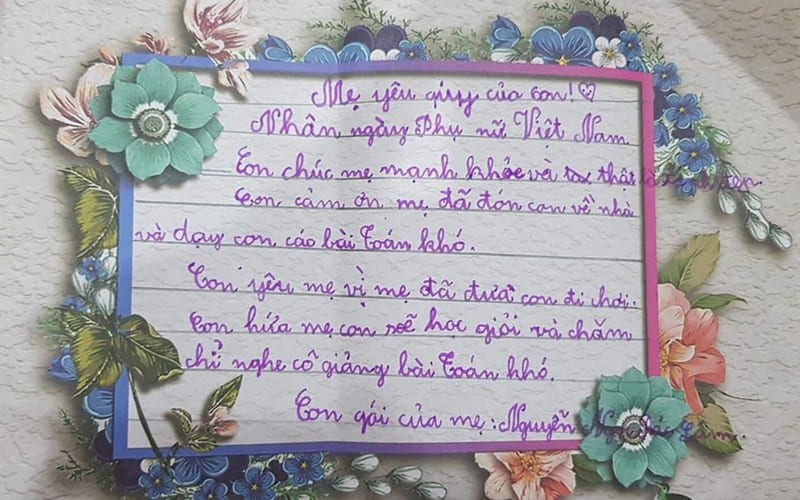 Mẹ yêu quý của con!
Nhân ngày Phụ nữ Việt Nam
Con chúc mẹ mạnh khỏe và thật
Con cảm ơn mẹ đã đón con về nhà
và dạy con cáo bài Toán khó.
Con yêu mẹ vì mẹ đã đưa con đi chơi.
Con hứa mẹ con sẽ học giỏi và chăm
chỉ nghe cô giảng bài Toán khó.
Con gái của mẹ: Nguyễn